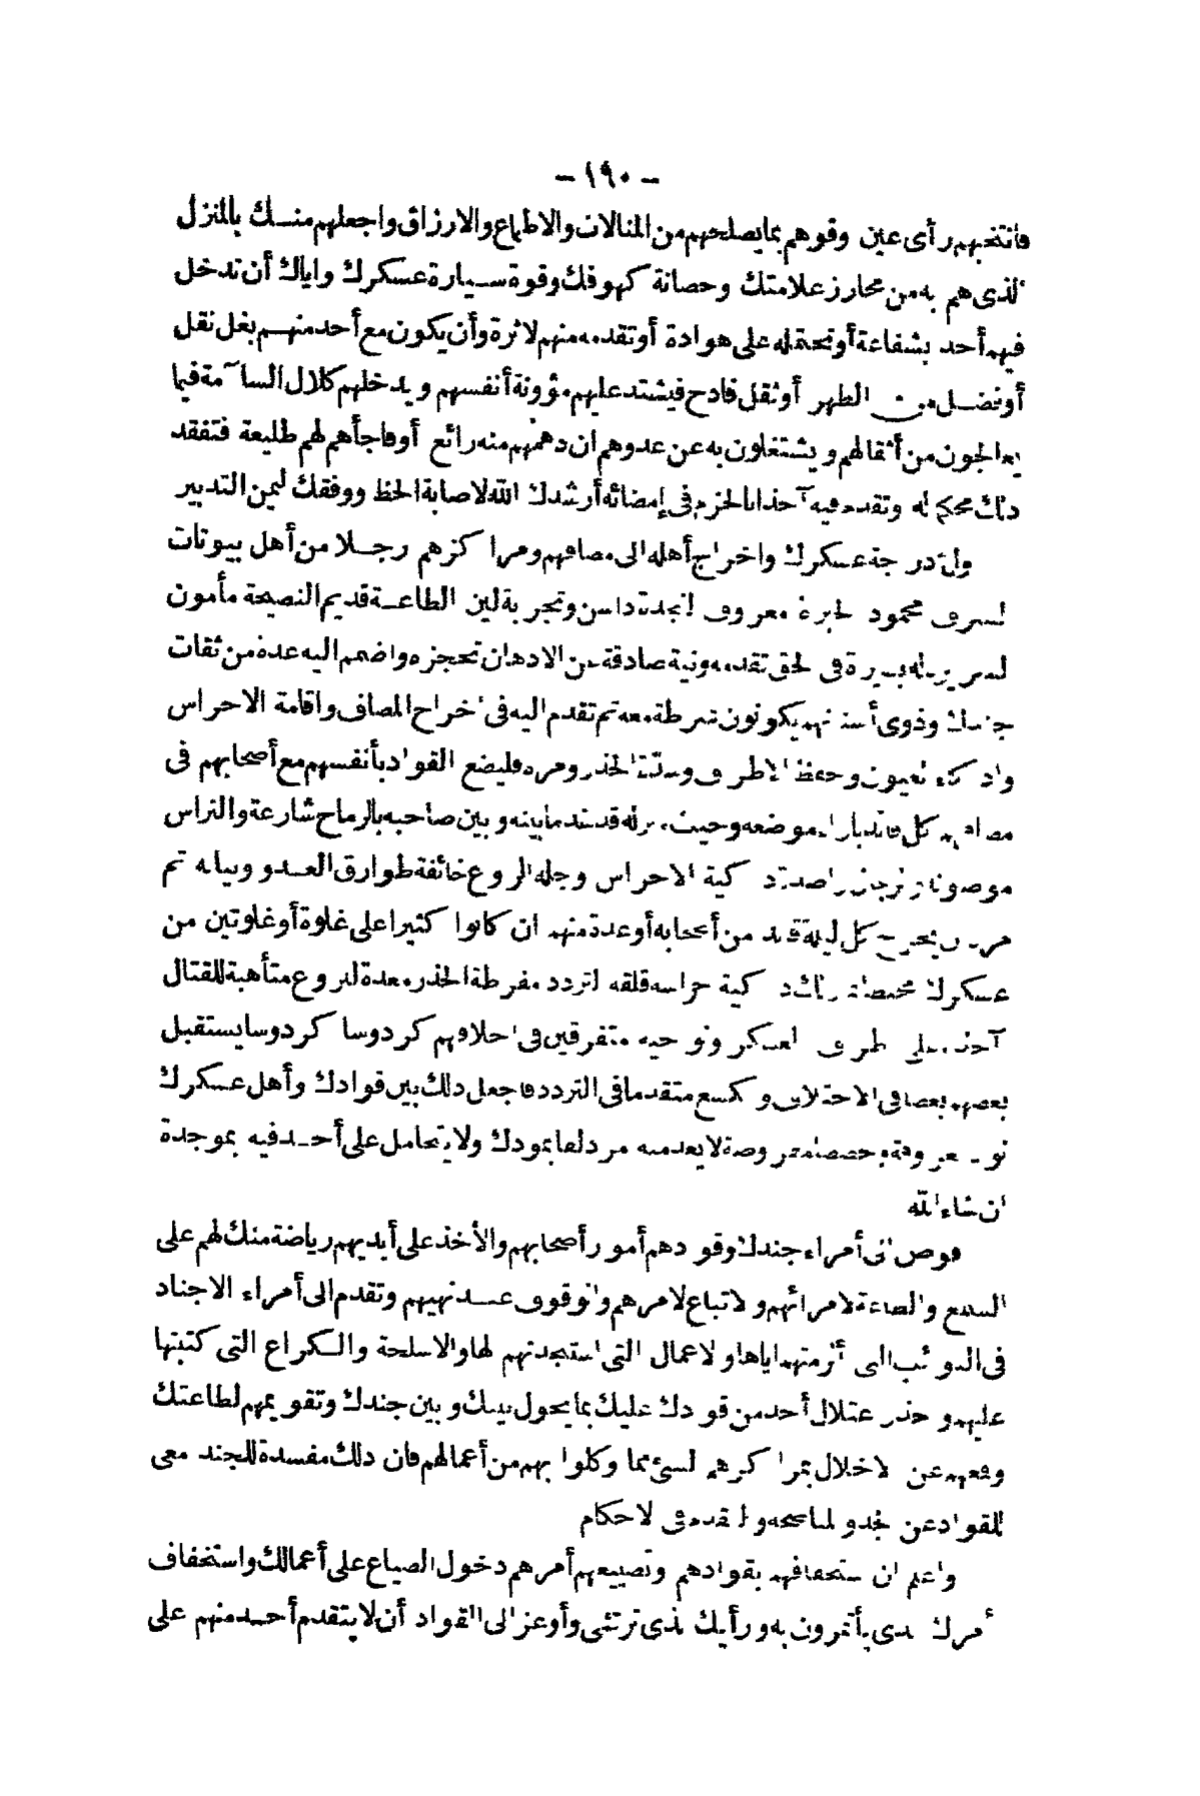 - ١٩٠ -
فانتخبهم رأى عين وقوهم بما يصلحهم من المنالات والاطماع والارزاق واجعلهم منك بالمنزل
الذى هم به من محارز علامتك وحصانة كهوفك وقوة سيارة عسكرك واياك أن تدخل
فيهم أحد بشفاعة أو تحتمله على هوادة أو تقدمه منهم لاثرة وأن يكون مع أحد منهم بغل نقل
أو فضل من الظهر أو ثقل فادح فيشتد عليهم مؤونة أنفسهم ويدخلهم كلال السآمة فيما
يعالجون من أثقالهم ويشتغلون به عن عدوهم ان دهمهم منه رائع أو فاجأهم لهم طليعة فتفقد
ذلك محكم له وتقدم فيه آخذا بالحزم فى إمضائه أرشدك الله لاصابة الحظ ووفقك ليمن التدبير
ول دراجة عسكرك واخراج أهله الى مصافهم ومراكزهم رجلا من أهل بيوتات
الشرف محمود الخبرة معروف النجدة ذا سن وتجربة لين الطاعة قديم النصيحة مأمون
السريرة له بصيرة فى الحق تقدمه ونية صادقة عن الادهان تحجزه واضمم اليه عدة من ثقات
جندك وذوى أسنانهم يكونون شرطة معه ثم تقدم اليه فى اخراج المصاف واقامة الاحراس
واذكاء العيون وحفظ الاطراف وشدة الحذر ومره فليضع القواد بأنفسهم مع أصحابهم فى
مصافهم كل قائد بازاء موضعه وحيث منزله قد سد ما بينه وبين صاحبه بالرماح شارعة والتراس
موضونة والرجال راصدة ذكية الاحراس وجلة الروع خائفة طوارق العدو وبياته ثم
مره أن يخرج كل ليلة قائد من أصحابه أو عدة منهم ان كانوا كثيرا على غلوة أو غلوتين من
عسكرك محيطا بمنزلك ذكية حراسه قلقة التردد مفرطة الحذر معدة للروع متأهبة للقتال
آخذة على أطراف العسكر ونواحيه متفرقين فى اختلافهم كردوسا كردوسا يستقبل
بعضهم بعضا فى الاختلاف وكسع متقدما فى التردد فاجعل ذلك بين قوادك وأهل عسكرك
نوبا معروفة وحصصا مفروضة لا يعد منه مزدلفا بمودك ولا يتحامل على أحد فيه بموجدة
ان شاء الله
فوض الى أمراء جندك وقوادهم أمور أصحابهم والأخذ على أيديهم رياضة منك لهم على
السمع والطاعة لامرائهم والاتباع لامرهم والوقوف عند نهيهم وتقدم الى أمراء الاجناد
فى النوائب التى ألزمتهم اياها والاعمال التى استنجدتهم لها والاسلحة والكراع التى كتبتها
عليهم واحذر اعتلال أحد من قوادك عليك بما يحول بينك وبين جندك وتقويمهم لطاعتك
وقمعهم عن الاخلال بمراكزهم لشئ مما وكلوا بهم من أعمالهم فان ذلك مفسدة للجند معى
للقواد عن الجد والمناصحة والتقدم فى الاحكام
واعلم ان استخفافهم بقوادهم وتضييعهم أمرهم دخول الضياع على أعمالك واستخفاف
أمرك الذى يأتمرون به ورأيك الذى ترتئى وأوعز الى القواد أن لا يتقدم أحد منهم على